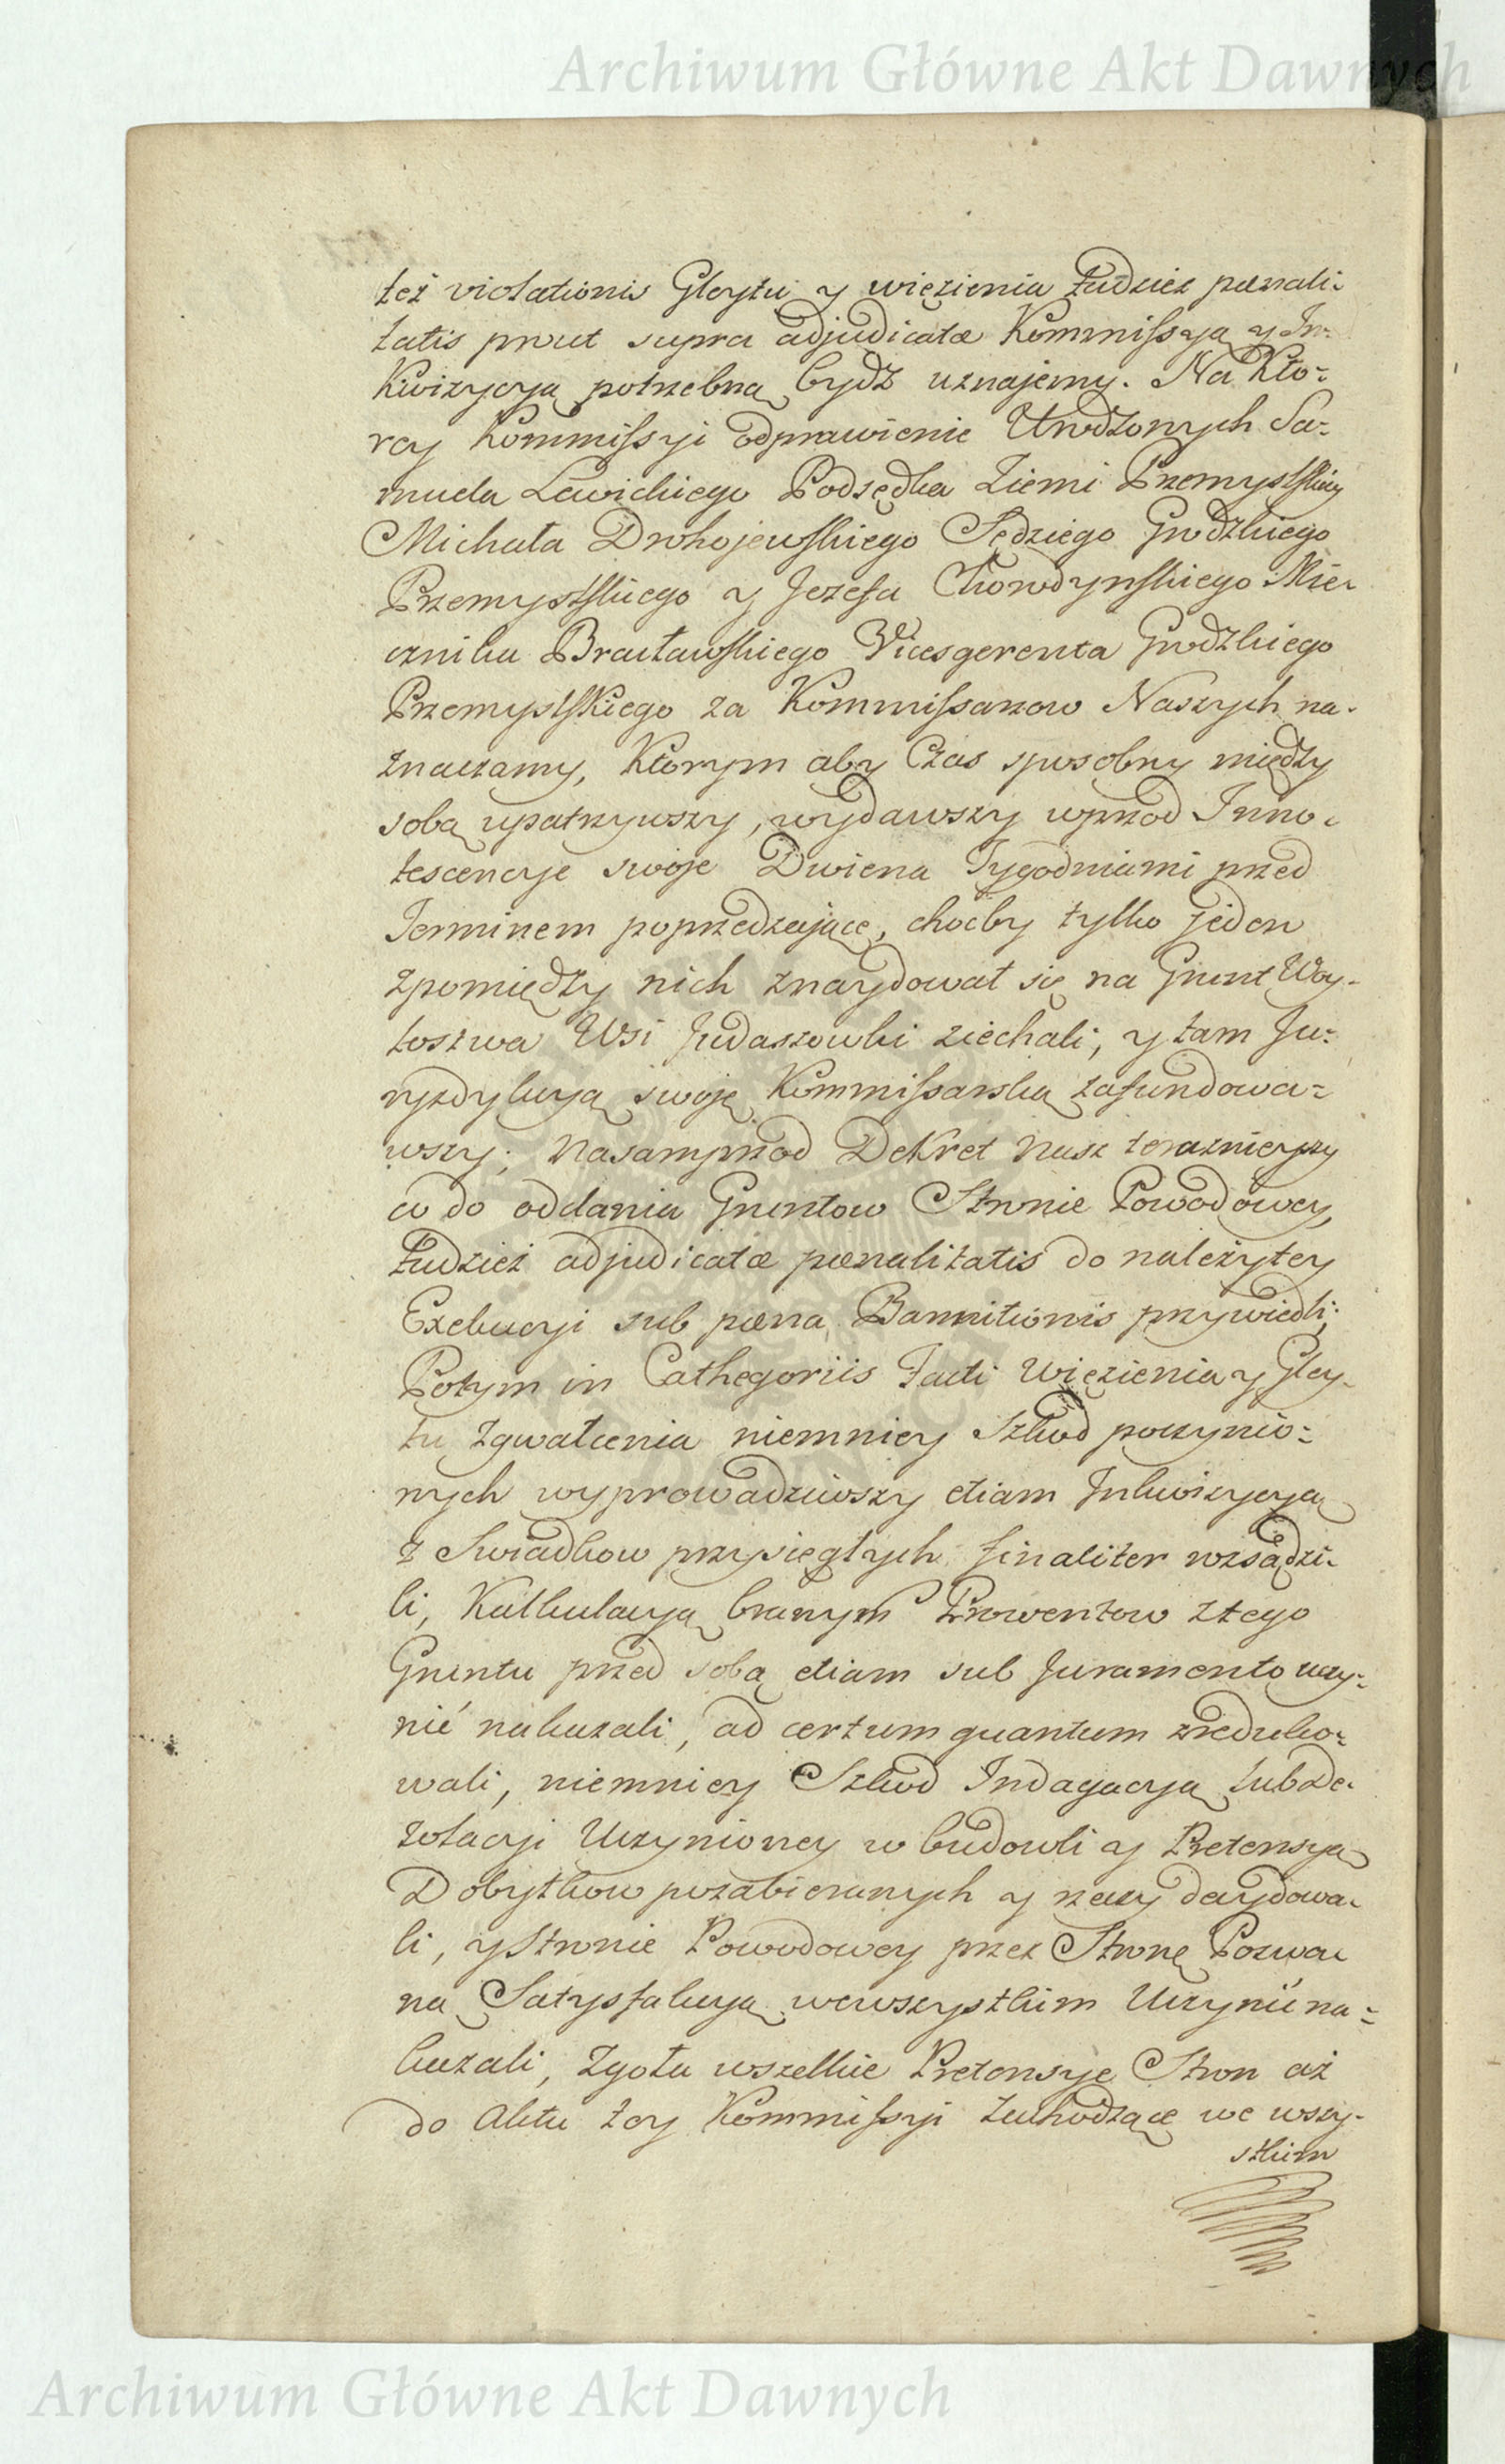 Archiwum Główne Akt Dawnych
też violationis Gleytu y więzienia tudzież pœnali-
tatis prout supra adjudicatæ Kommissyą y In-
kwizycyą potrzebną bydź uznajemy. Na Kto-
rey Kommissyi odprawienie Urodzonych Sa-
muela Lewickiego Podsędka Ziemi Przemyslskiey
Michała Drohojewskiego Sędziego Grodzkiego
Przemyslskiego y Jozefa Chordynskiego Mie-
cznika Bracławskiego Vicesgerenta Grodzkiego
Przemyslskiego za Kommissarzow Naszych na-
znaczamy, Ktorym aby Czas sposobny między
sobą upatrzywszy, wydawszy wprzod Inno-
tescencye swoje Dwiema Tygodniami przed
Terminem poprzedzające, choćby tylko jeden
zpomiędzy nich znaydował się na Grunt Woy-
tostwa Wsi Judaszowki ziechali, y tam Ju-
ryzdykcyą swoję Kommissarską zafundowa-
wszy; Nasamprzod Dekret nasz teraznieyszy
co do oddania Gruntow Stronie Powodowey,
Tudzież adjudicatæ pœnalitatis do należytey
Exekucyi sub pœna Bannitionis przywiedli;
Potym in Cathegoriis Facti Więzienia y Gley-
tu Zgwałcenia niemniey Szkod poczynio-
nych wyprowadziwszy etiam Inkwizycyą
z Swiadkow przysięgłych finaliter rozsądzi-
li, Kalkulacyą branym Prowentow ztego
Gruntu przed sobą etiam sub Juramento uczy-
nić nakazali, ad certum quantum zreduko-
wali, niemniey Szkod Indagacyą tub de-
zolacyi Uczynioney w budowli y Pretensyą
Dobytkow pozabieranych y rzeczy decydowa-
li, y Stronie Powodowey przez Stronę Pozwa-
ną Satysfakcyą wewszystkim Uczynić na-
kazali, Zgoła wszelkie Pretensye Stron aż
do Aktu tey Kommissyi zachodzące we wszy-
stkim
Archiwum Główne Akt Dawnych